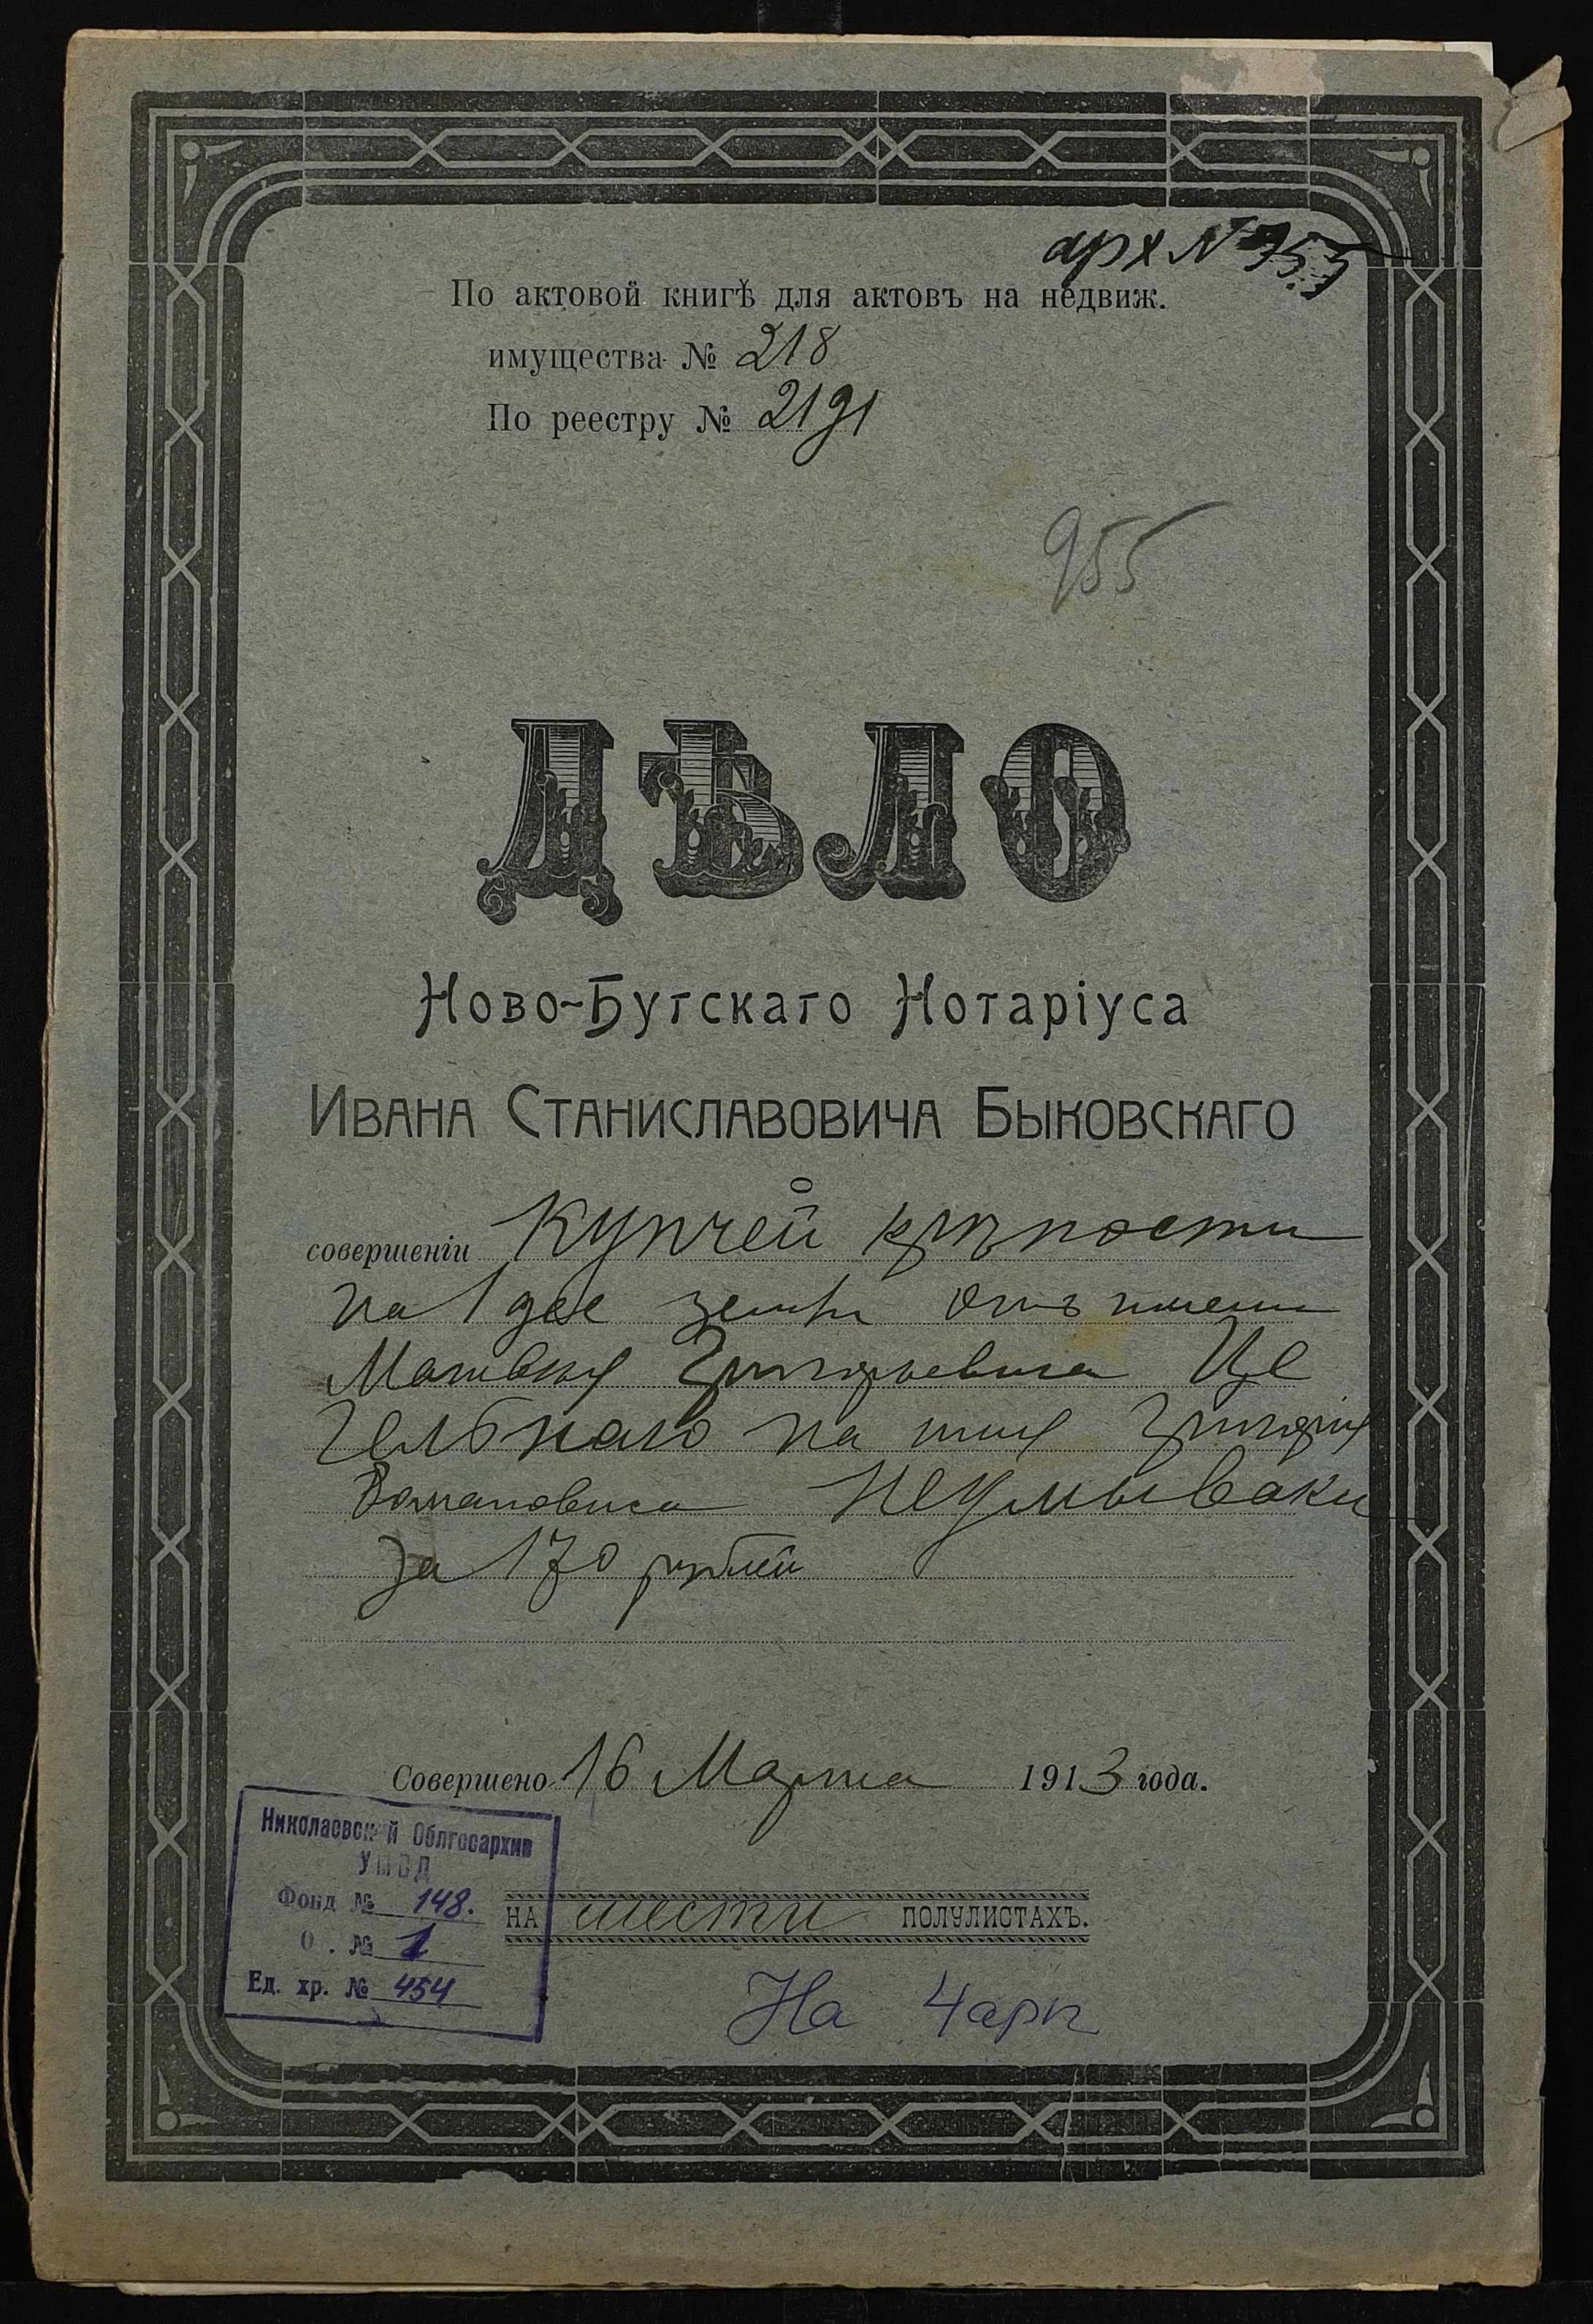 арх № 955
По актовой книгѣ для актовъ на недвиж.
имущества № 218
По реестру № 2191
955
ДѢЛО
Ново-Бугскаго Нотаріуса
Ивана Станиславовича Быковскаго
о
совершеніи Купчей крѣпости
на 1 дес земли отъ имени
Матвѣя Григорьевича Це
гельнаго на имя Григорія
Романовича Неумываки
за 170 рублей
Совершено 16 Марта 1913 года.
Николаевский Облгосархив
УМВД
Фонд № 148.
О. № 1
Ед. хр. № 454
НА шести ПОЛУЛИСТАХЪ.
На 4 арк